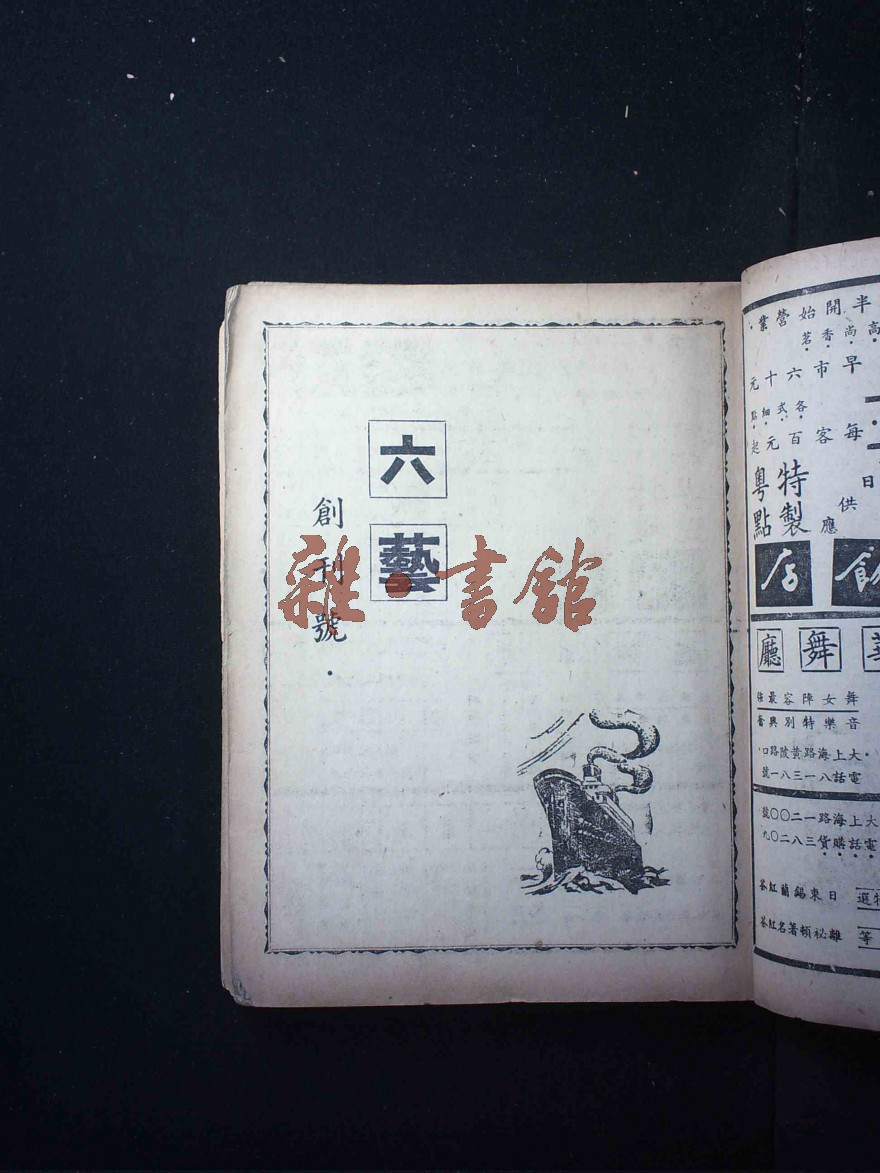 六藝
創刊號・
雜・書館
半開始營業・
高尚香茗
早市六十元
各式細點
每客百元起
特製
粵點
日
供應
飯店
舞廳
舞女陣容最強
音樂特別興奮
・大上海路黃陂路口・
電話八一三八一號
大上海路一二〇〇號
電話購貨三八二〇九
日東錫蘭紅茶
選
離祕頓著名紅茶
等